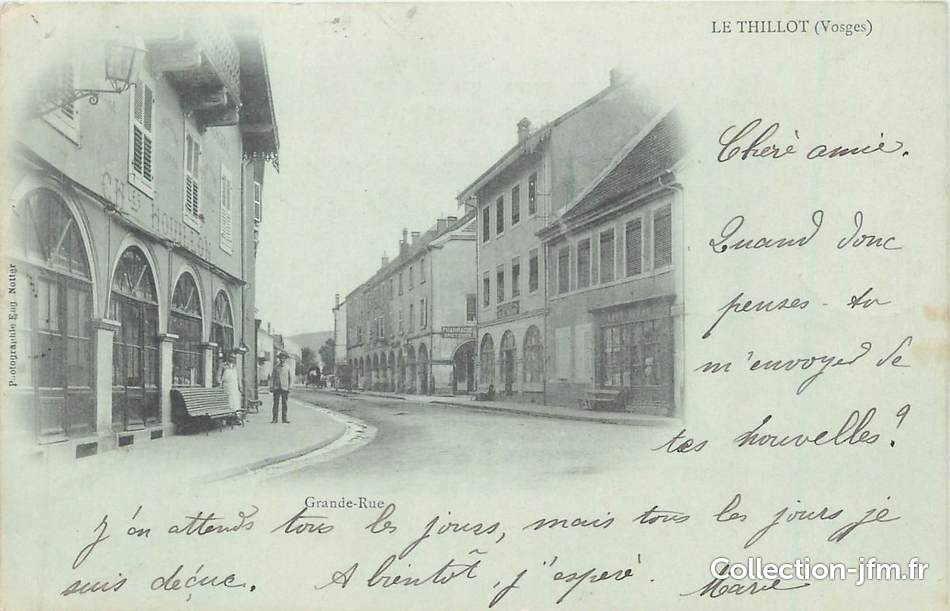 LE THILLOT (Vosges)
Chèrè amie.
Quand donc
penses-tu
m'envoyer de
tes nouvelles?
CHles HOU
PHARMACIE
Photographie Eug Notter
Grande-Rue
J'en attends tous les jours, mais tous les jours je
suis deçue. A bientôt, j'esperè. Marie
Collection-jfm.fr